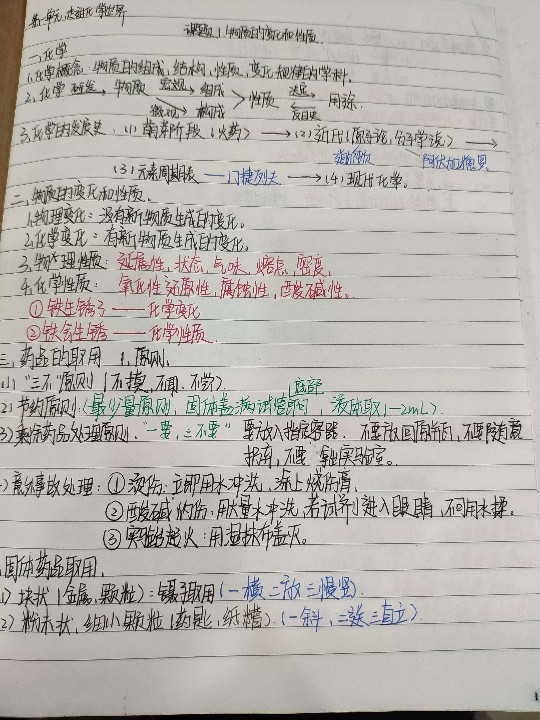 第一单元 走进化学世界
课题1 物质的变化和性质.
一、化学
1.化学概念:物质的组成,结构,性质,变化规律的学科.
2.化学 研究→ 物质 宏观→ 组成 > 性质 决定→ 用途.
微观→ 构成 反映
3.化学的发展史.(1)萌芽阶段(火药)→(2)近代(原子论,分子学说)→
道尔顿 阿伏加德罗
(3)元素周期表 — 门捷列夫 →(4)现代化学.
二.物质的变化和性质.
1.物理变化:没有新物质生成的变化.
2.化学变化:有新物质生成的变化.
3.物理性质:延展性,状态,气味,熔点,密度.
4.化学性质:氧化性,还原性,腐蚀性,酸碱性.
①铁生锈了 —— 化学变化
②铁会生锈 —— 化学性质.
三.药品的取用 1.原则.
(1)"三不"原则(不摸,不闻,不尝).
底部
2)节约原则(最少量原则,固体盖满试管即可,液体取1-2mL).
3)剩余药品处理原则."一要,三不要" 要放入指定容器.不要放回原瓶,不要随意
抛弃,不要拿出实验室.
)意外事故处理:①烫伤:立即用水冲洗,涂上烫伤膏.
②酸碱灼伤:用大量水冲洗,若试剂进入眼睛,不可用水揉.
③实验起火:用湿抹布盖灭.
固体药品取用.
1)块状(金属,颗粒):镊子取用(一横二放三慢竖)
2)粉末状,细小颗粒(药匙,纸槽).(一斜,二送三直立)